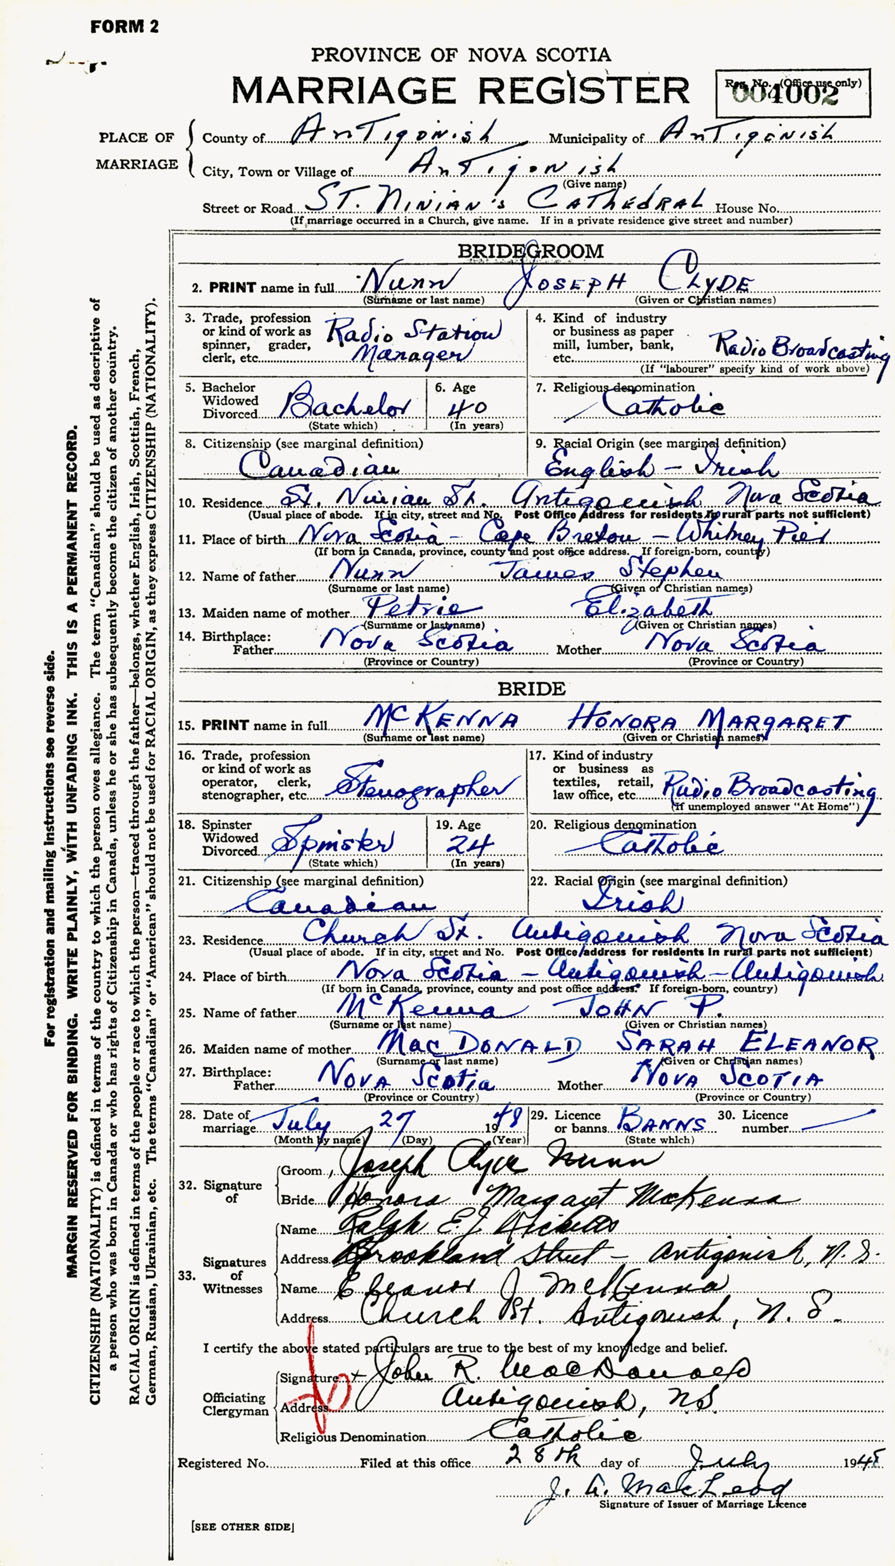 FORM 2
PROVINCE OF NOVA SCOTIA
MARRIAGE REGISTER
Reg. No. (Office use only)
004002
PLACE OF MARRIAGE
County of Antigonish Municipality of Antigonish
City, Town or Village of Antigonish
(Give name)
Street or Road St. Ninian's Cathedral House No.
(If marriage occurred in a Church, give name. If in a private residence give street and number)
BRIDEGROOM
2. PRINT name in full Nunn Joseph Clyde
(Surname or last name) (Given or Christian names)
3. Trade, profession or kind of work as spinner, grader, clerk, etc. Radio Station Manager
4. Kind of industry or business as paper mill, lumber, bank, etc. Radio Broadcasting
(If "labourer" specify kind of work above)
5. Bachelor Widowed Divorced Bachelor
(State which)
6. Age 40
(In years)
7. Religious denomination Catholic
8. Citizenship (see marginal definition) Canadian
9. Racial Origin (see marginal definition) English - Irish
10. Residence St. Ninian St. Antigonish Nova Scotia
(Usual place of abode. If in city, street and No. Post Office address for residents in rural parts not sufficient)
11. Place of birth Nova Scotia - Cape Breton - Whitney Pier
(If born in Canada, province, county and post office address. If foreign-born, country)
12. Name of father Nunn James Stephen
(Surname or last name) (Given or Christian names)
13. Maiden name of mother Petrie Elizabeth
(Surname or last name) (Given or Christian names)
14. Birthplace: Father Nova Scotia Mother Nova Scotia
(Province or Country) (Province or Country)
BRIDE
15. PRINT name in full McKenna Honora Margaret
(Surname or last name) (Given or Christian names)
16. Trade, profession or kind of work as operator, clerk, stenographer, etc. Stenographer
17. Kind of industry or business as textiles, retail, law office, etc. Radio Broadcasting
(If unemployed answer "At Home")
18. Spinster Widowed Divorced Spinster
(State which)
19. Age 24
(In years)
20. Religious denomination Catholic
21. Citizenship (see marginal definition) Canadian
22. Racial Origin (see marginal definition) Irish
23. Residence Church St. Antigonish Nova Scotia
(Usual place of abode. If in city, street and No. Post Office address for residents in rural parts not sufficient)
24. Place of birth Nova Scotia - Antigonish - Antigonish
(If born in Canada, province, county and post office address. If foreign-born, country)
25. Name of father McKenna John P.
(Surname or last name) (Given or Christian names)
26. Maiden name of mother MacDonald Sarah Eleanor
(Surname or last name) (Given or Christian names)
27. Birthplace: Father Nova Scotia Mother Nova Scotia
(Province or Country) (Province or Country)
28. Date of marriage July 27 1948
(Month by name) (Day) (Year)
29. Licence or banns Banns
(State which)
30. Licence number
32. Signature of
Groom Joseph Clyde Nunn
Bride Honora Margaret McKenna
33. Signatures of Witnesses
Name Ralph E.J. Ricketts
Address Brookland Street - Antigonish, N.S.
Name Eleanor J McKenna
Address Church St. Antigonish, N.S.
I certify the above stated particulars are true to the best of my knowledge and belief.
Officiating Clergyman
Signature x John R. MacDonald
Address Antigonish, N.S.
Religious Denomination Catholic
Registered No. Filed at this office 28th day of July 194
J. A. MacLeod
Signature of Issuer of Marriage Licence
[SEE OTHER SIDE]
For registration and mailing instructions see reverse side.
MARGIN RESERVED FOR BINDING. WRITE PLAINLY, WITH UNFADING INK. THIS IS A PERMANENT RECORD.
CITIZENSHIP (NATIONALITY) is defined in terms of the country to which the person owes allegiance. The term "Canadian" should be used as descriptive of
a person who was born in Canada or who has rights of Citizenship in Canada, unless he or she has subsequently become the citizen of another country.
RACIAL ORIGIN is defined in terms of the people or race to which the person—traced through the father—belongs, whether English, Irish, Scottish, French,
German, Russian, Ukrainian, etc. The terms "Canadian" or "American" should not be used for RACIAL ORIGIN, as they express CITIZENSHIP (NATIONALITY).